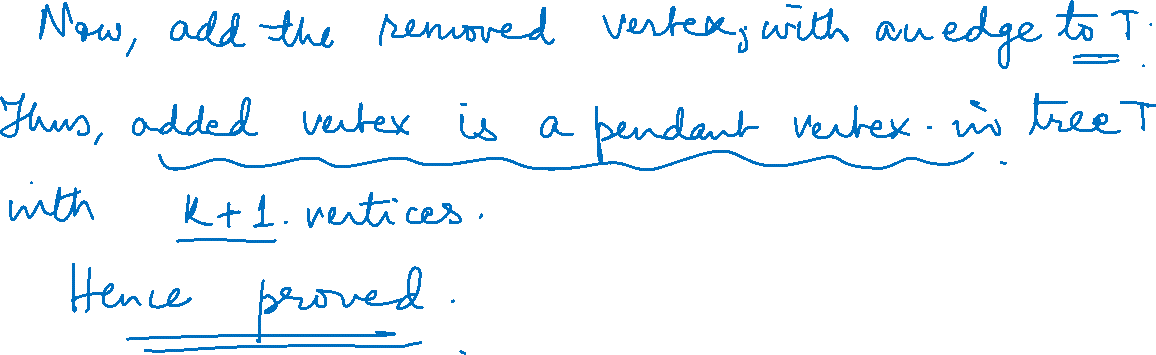 Now, add the removed vertex, with an edge to T.
Thus, added vertex is a pendant vertex. in tree T
with k+1. vertices.
Hence proved.